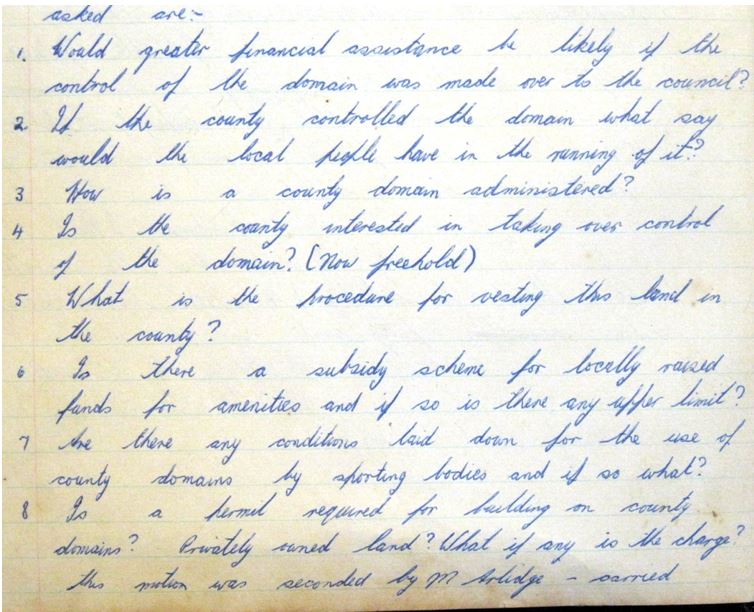 asked are:-
1. Would greater financial assistance be likely if the
control of the domain was made over to the council?
2 If the county controlled the domain what say
would the local people have in the running of it?
3 How is a county domain administered?
4 Is the county interested in taking over control
of the domain? (Now freehold)
5 What is the procedure for vesting this land in
the county?
6 Is there a subsidy scheme for locally raised
funds for amenities and if so is there any upper limit?
7 Are there any conditions laid down for the use of
county domains by sporting bodies and if so what?
8 Is a permit required for building on county
domains? Privately owned land? What if any is the charge?
this motion was seconded by M Arlidge - carried